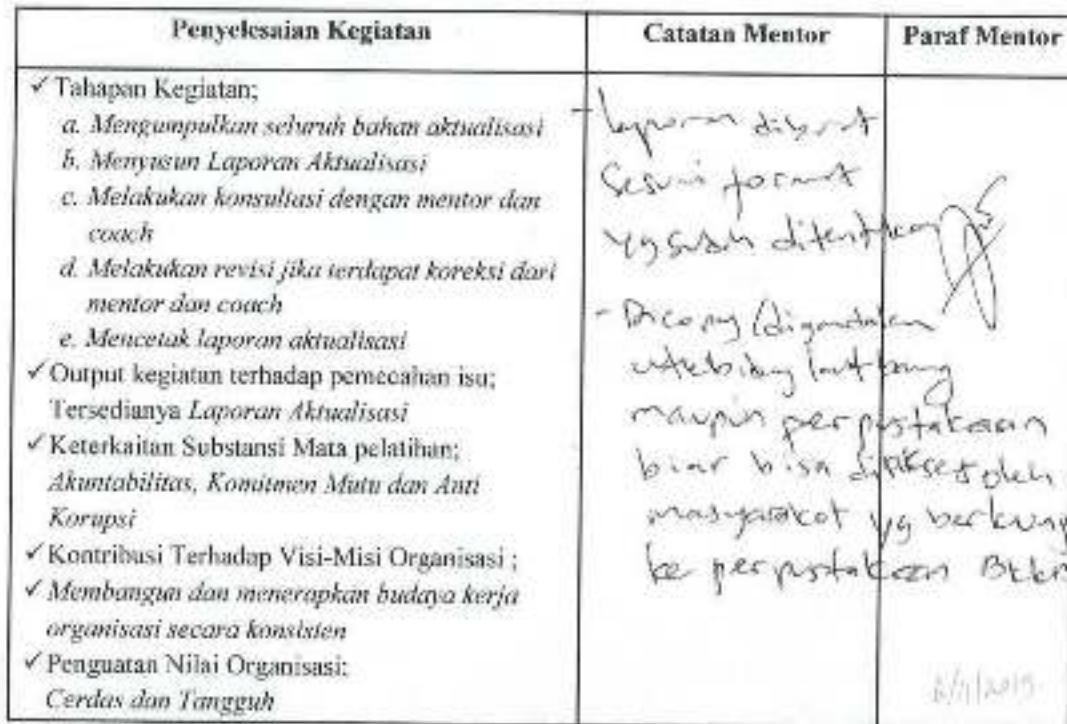 Penyelesaian Kegiatan
Catatan Mentor
Paraf Mentor
✓ Tahapan Kegiatan;
a. Mengumpulkan seluruh bahan aktualisasi
b. Menyusun Laporan Aktualisasi
c. Melakukan konsultasi dengan mentor dan
coach
d. Melakukan revisi jika terdapat koreksi dari
mentor dan coach
e. Mencetak laporan aktualisasi
✓ Output kegiatan terhadap pemecahan isu;
Tersedianya Laporan Aktualisasi
✓ Keterkaitan Substansi Mata pelatihan;
Akuntabilitas, Komitmen Mutu dan Anti
Korupsi
✓ Kontribusi Terhadap Visi-Misi Organisasi ;
✓ Membangun dan menerapkan budaya kerja
organisasi secara konsisten
✓ Penguatan Nilai Organisasi;
Cerdas dan Tangguh
- laporan dibuat
sesuai format
yg sudah ditentukan
- Dicopy (digandakan
bidang
maupun perpustakaan
biar bisa diakses oleh
masyarakat yg
ke perpustakaan